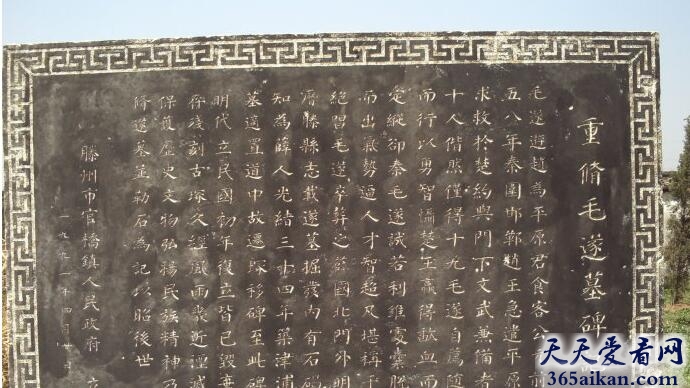 重脩毛遂墓碑
毛遂遊趙為平原君食客公前
五八年秦圍邯鄲趙王急遣平原
求救於楚約與門下文武兼備者
十人偕然僅得十九毛遂自薦随
而行以勇智懾楚王贏得歃血而
定縱却秦毛遂誠若利錐處囊脱
而出氣勢過人才智超凡堪稱千
絶唱毛遂卒葬之薛國北門外明
齊滕縣志載遂墓掘裁内有石
知為薛人光緒三十四年築津浦
墓適置道中故遷塚移碑至此碑
明代立民國初年復立皆已毀妻
存殘刻古塚久經風雨幾近湮滅
保護歷史文物弘揚民族精神乃
脩遂墓並勒石為記以昭後世
滕州市官橋鎮人民政府 立
一九九一年四月廿日
天天爱看网
365aikan.com